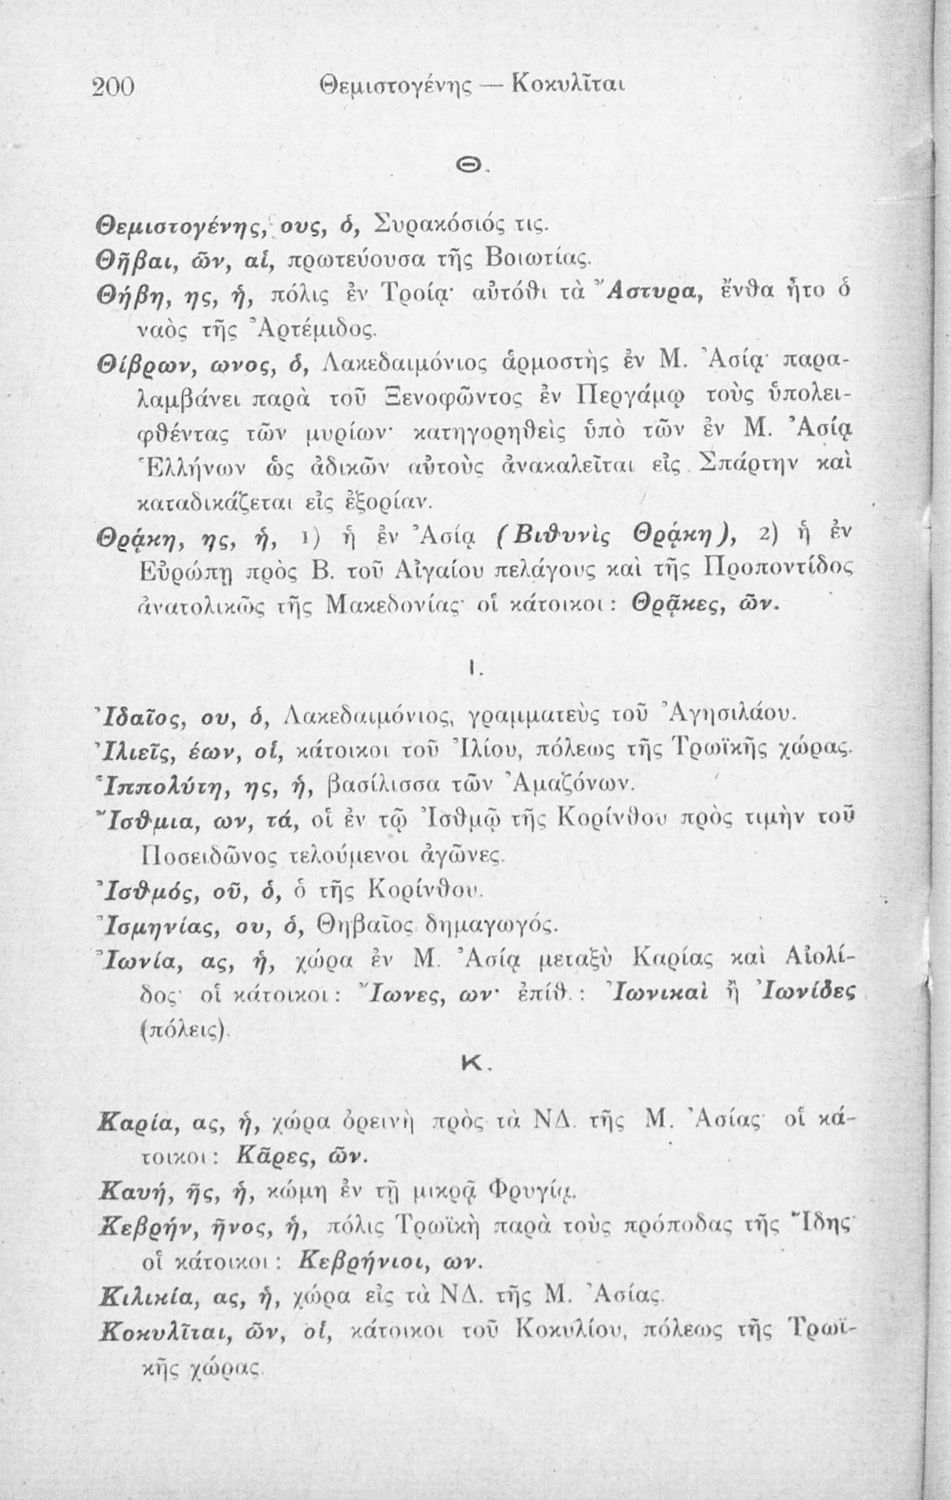 200 Θεμιστογένης — Κοκυλῖται
Θ.
Θεμιστογένης, ους, ὁ, Συρακόσιός τις.
Θῆβαι, ῶν, αἱ, πρωτεύουσα τῆς Βοιωτίας.
Θήβη, ης, ἡ, πόλις ἐν Τροίᾳ· αὐτόθι τὰ Ἄστυρα, ἔνθα ἦτο ὁ
ναὸς τῆς Ἀρτέμιδος.
Θίβρων, ωνος, ὁ, Λακεδαιμόνιος ἁρμοστὴς ἐν Μ. Ἀσίᾳ· παρα-
λαμβάνει παρὰ τοῦ Ξενοφῶντος ἐν Περγάμῳ τοὺς ὑπολει-
φθέντας τῶν μυρίων· κατηγορηθεὶς ὑπὸ τῶν ἐν Μ. Ἀσίᾳ
Ἑλλήνων ὡς ἀδικῶν αὐτοὺς ἀνακαλεῖται εἰς Σπάρτην καὶ
καταδικάζεται εἰς ἐξορίαν.
Θρᾴκη, ης, ἡ, 1) ἡ ἐν Ἀσίᾳ (Βιθυνὶς Θρᾴκη), 2) ἡ ἐν
Εὐρώπῃ πρὸς Β. τοῦ Αἰγαίου πελάγους καὶ τῆς Προποντίδος
ἀνατολικῶς τῆς Μακεδονίας· οἱ κάτοικοι: Θρᾷκες, ῶν.
Ι.
Ἰδαῖος, ου, ὁ, Λακεδαιμόνιος, γραμματεὺς τοῦ Ἀγησιλάου.
Ἰλιεῖς, έων, οἱ, κάτοικοι τοῦ Ἰλίου, πόλεως τῆς Τρωϊκῆς χώρας.
Ἱππολύτη, ης, ἡ, βασίλισσα τῶν Ἀμαζόνων.
Ἴσθμια, ων, τά, οἱ ἐν τῷ Ἰσθμῷ τῆς Κορίνθου πρὸς τιμὴν τοῦ
Ποσειδῶνος τελούμενοι ἀγῶνες.
Ἰσθμός, οῦ, ὁ, ὁ τῆς Κορίνθου.
Ἰσμηνίας, ου, ὁ, Θηβαῖος δημαγωγός.
Ἰωνία, ας, ἡ, χώρα ἐν Μ. Ἀσίᾳ μεταξὺ Καρίας καὶ Αἰολί-
δος· οἱ κάτοικοι: Ἴωνες, ων· ἐπίθ.: Ἰωνικαὶ ἢ Ἰωνίδες
(πόλεις).
Κ.
Καρία, ας, ἡ, χώρα ὀρεινὴ πρὸς τὰ ΝΔ. τῆς Μ. Ἀσίας· οἱ κά-
τοικοι: Κᾶρες, ῶν.
Καυή, ῆς, ἡ, κώμη ἐν τῇ μικρᾷ Φρυγίᾳ.
Κεβρήν, ῆνος, ἡ, πόλις Τρωϊκὴ παρὰ τοὺς πρόποδας τῆς Ἴδης·
οἱ κάτοικοι: Κεβρήνιοι, ων.
Κιλικία, ας, ἡ, χώρα εἰς τὰ ΝΔ. τῆς Μ. Ἀσίας.
Κοκυλῖται, ῶν, οἱ, κάτοικοι τοῦ Κοκυλίου, πόλεως τῆς Τρωϊ-
κῆς χώρας.